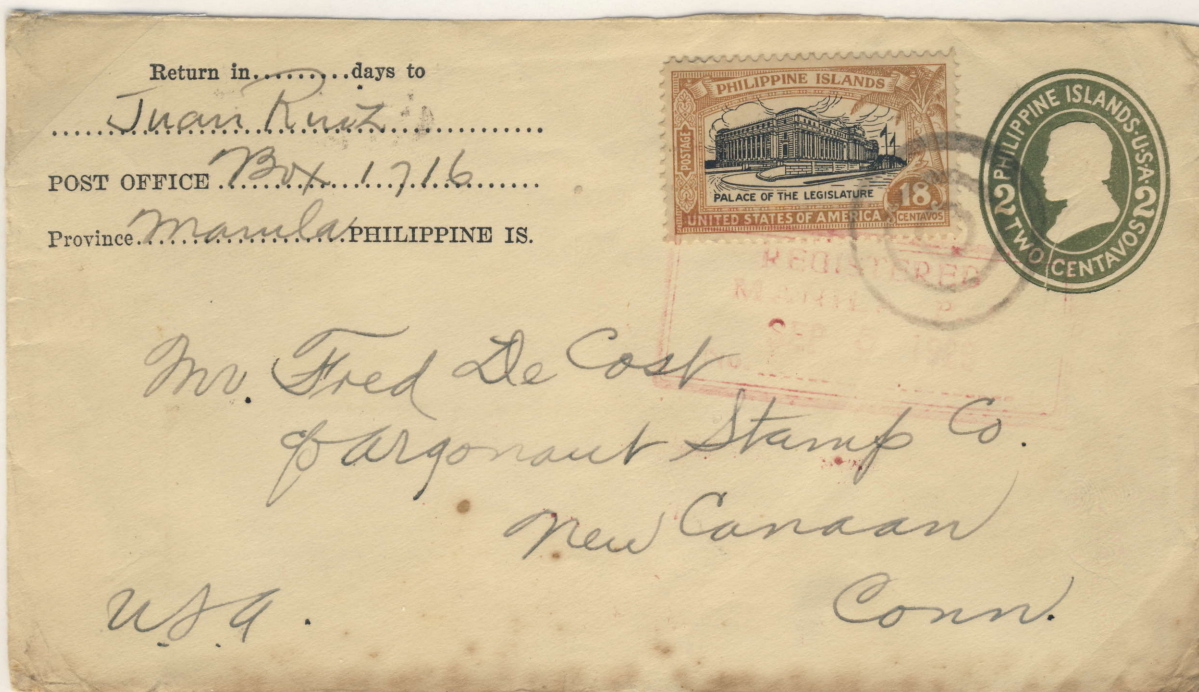 Return in..........days to
Juan Ruiz
POST OFFICE Box 1716
Province Manila PHILIPPINE IS.
PHILIPPINE ISLANDS
POSTAGE
PALACE OF THE LEGISLATURE
18 CENTAVOS
UNITED STATES OF AMERICA
PHILIPPINE ISLANDS·U.S.A.
2 2
TWO CENTAVOS
REGISTERED
Mr. Fred De Cost
c/o Argonaut Stamp Co.
New Canaan
Conn.
U.S.A.